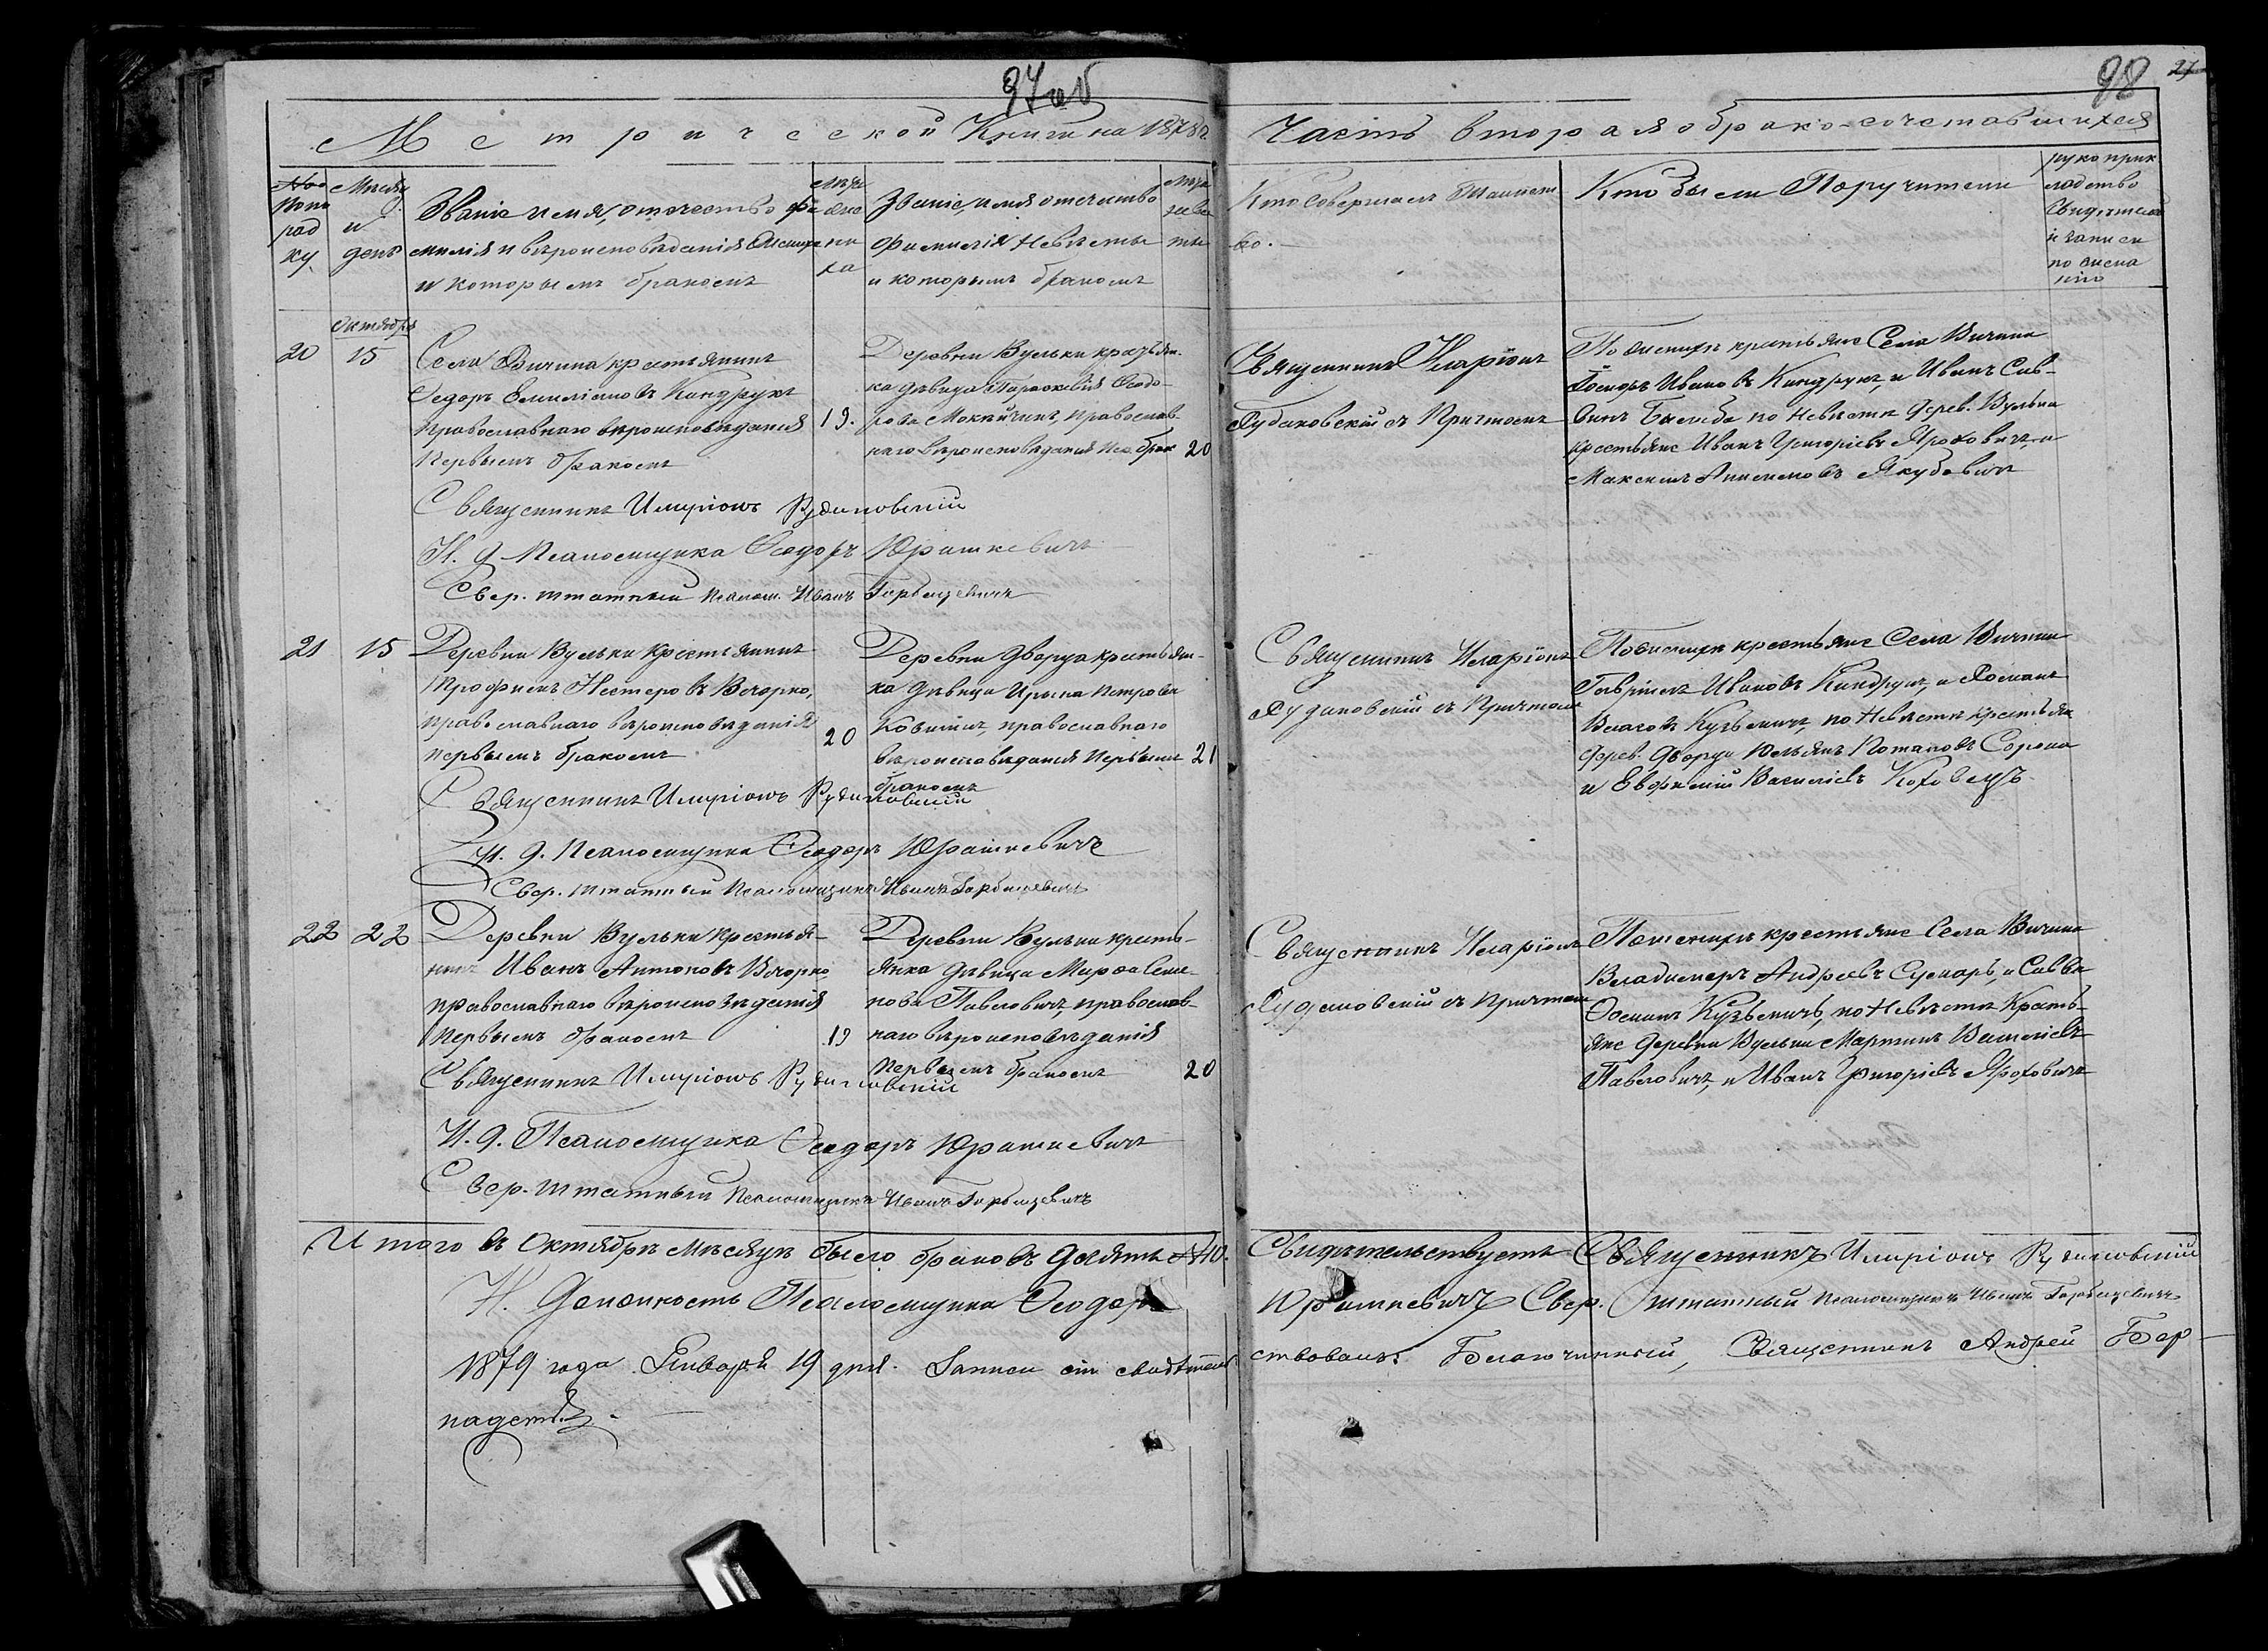 97 об
98 27
Метрической Книги на 1878 г. Часть вторая о брако-сочетавшихся
Мѣсяц и день
Званіе, имя, отчество, фамилія и вѣроисповѣданія Жениха и которымъ бракомъ
Званіе, имя отчество фамилія Невѣсты и которымъ бракомъ
Кто Совершалъ Таинство.
Кто были Поручители
Октября
20 15
Села Вичина крестьянинъ
Ѳедоръ Емиліановъ Кандрукъ
православнаго вѣроисповѣданія
Первымъ бракомъ
19.
Деревни Вульки крестьян-
ка дѣвица Параскевія Ѳеодо-
рова православ-
наго вѣроисповѣданія
20
Священникъ Иларіонъ
Рудаковскій съ Причтомъ
По Женихѣ крестьяне Села Вичина
Ивановъ Кандрукъ, и Иванъ Сав-
винъ по Невѣстѣ дерев. Вульки
крестьяне Иванъ Григоріевъ Яроховичъ и
Максимъ Якубовичъ
Священникъ Иларіонъ Рудаковскій
И. д. Псаломщика Ѳеодоръ Юрашкевичъ
Свер. штатный Псалом. Иванъ Горбацевичъ
21 15
Деревни Вульки крестьянинъ
Трофимъ Нестеровъ Вечорко,
православнаго вѣроисповѣданія
первымъ бракомъ
20
Деревни Дворца крестьян-
ка дѣвица Ирина Петрова
православнаго
вѣроисповѣданія Первымъ
бракомъ
21
Священникъ Иларіонъ
Рудаковскій съ Причтомъ
По Женихѣ крестьяне Села Вичина
Гавріилъ Ивановъ Кандрукъ, и Романъ
Власовъ Кузьмичъ, по Невѣстѣ крестьян
дерев. Дворца Потаповъ Сорока
и Евфимій Василіевъ Коховецъ
Священникъ Иларіонъ Рудаковскій
И. д. Псаломщика Ѳеодоръ Юрашкевичъ
Свер. штатный Псаломщикъ Иванъ Горбацевичъ
22 22
Деревни Вульки крестья-
нинъ Иванъ Антоновъ Вечорко
православнаго вѣроисповѣданія
Первымъ бракомъ
19
Деревни Вульки кресть-
янка дѣвица Марѳа Семе-
нова Павловичъ, православ-
наго вѣроисповѣданія
Первымъ бракомъ
20
Священникъ Иларіонъ
Рудаковскій съ Причтомъ
По Женихѣ крестьяне Села Вичина
Владимеръ Андреевъ и Савва
Кузьмичъ, по Невѣстѣ Кресть-
яне деревни Вульки Мартинъ Василіевъ
Павловичъ, и Иванъ Григоріевъ Яроховичъ
Священникъ Иларіонъ Рудаковскій
И. д. Псаломщика Ѳеодоръ Юрашкевичъ
Свер. штатный Псаломщикъ Иванъ Горбацевичъ
Итого въ Октябрѣ мѣсяцѣ было браковъ девять 10. Свидѣтельствуетъ Священникъ Иларіонъ Рудаковскій
И. Должность Псаломщика Ѳеодоръ Юрашкевичъ Свер. штатный Псаломщикъ Иванъ Горбацевичъ
1879 года Января 19 дня. Записи сіи свидѣтель ствовалъ: Благочинный, Священникъ Андрей Бер-